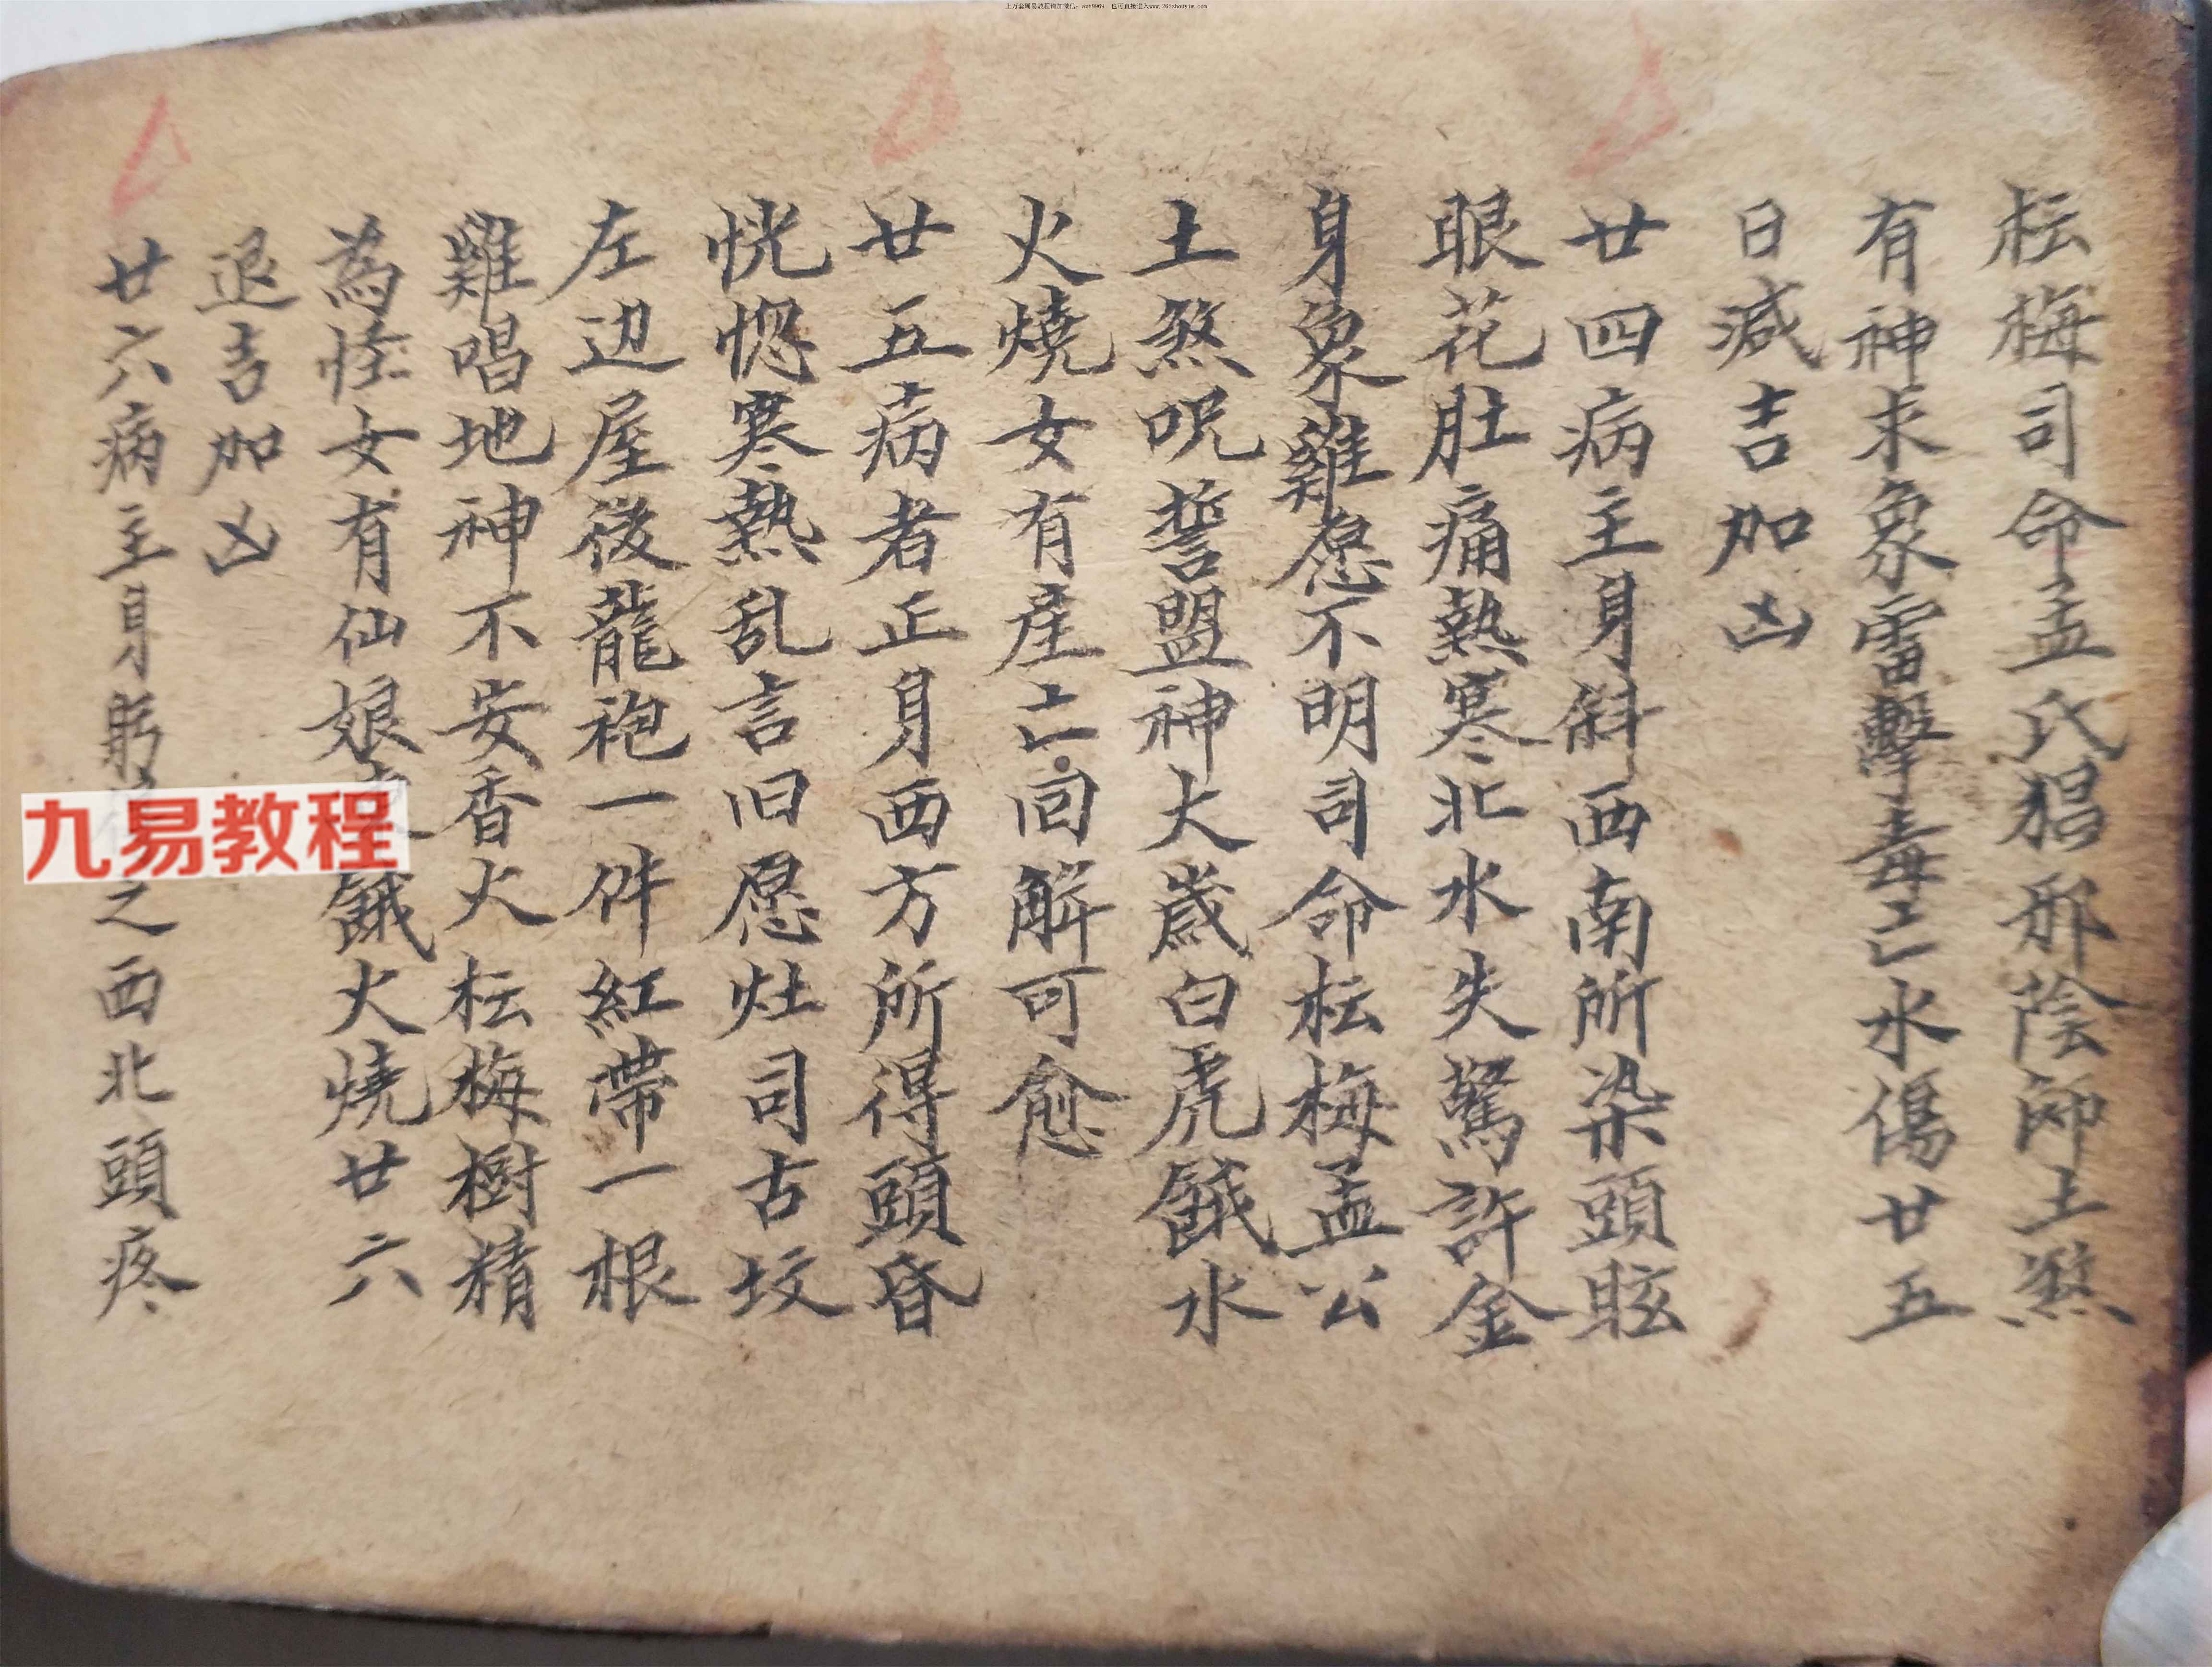 上万套周易教程请加微信：
也可直接进入www.
枟梅司命孟氏猖邪陰師土煞
有神求象雷擊毒亡水傷廿五
日減吉加凶
廿四病主身斜西南所染頭眩
眼花肚痛熱寒北水失驚許金
身象雞愿不明司命枟梅孟公
土煞呪誓盟神大歲白虎餓水
火燒女有産亡回解可愈
廿五病者正身西方所得頭昏
恍惚寒熱乱言旧愿灶司古坟
左边屋後龍袍一件紅帶一根
雞唱地神不安香火枟梅樹精
為怪女有仙娘餓火燒廿六
退吉加凶
廿六病主身躬之西北頭疼
九易教程